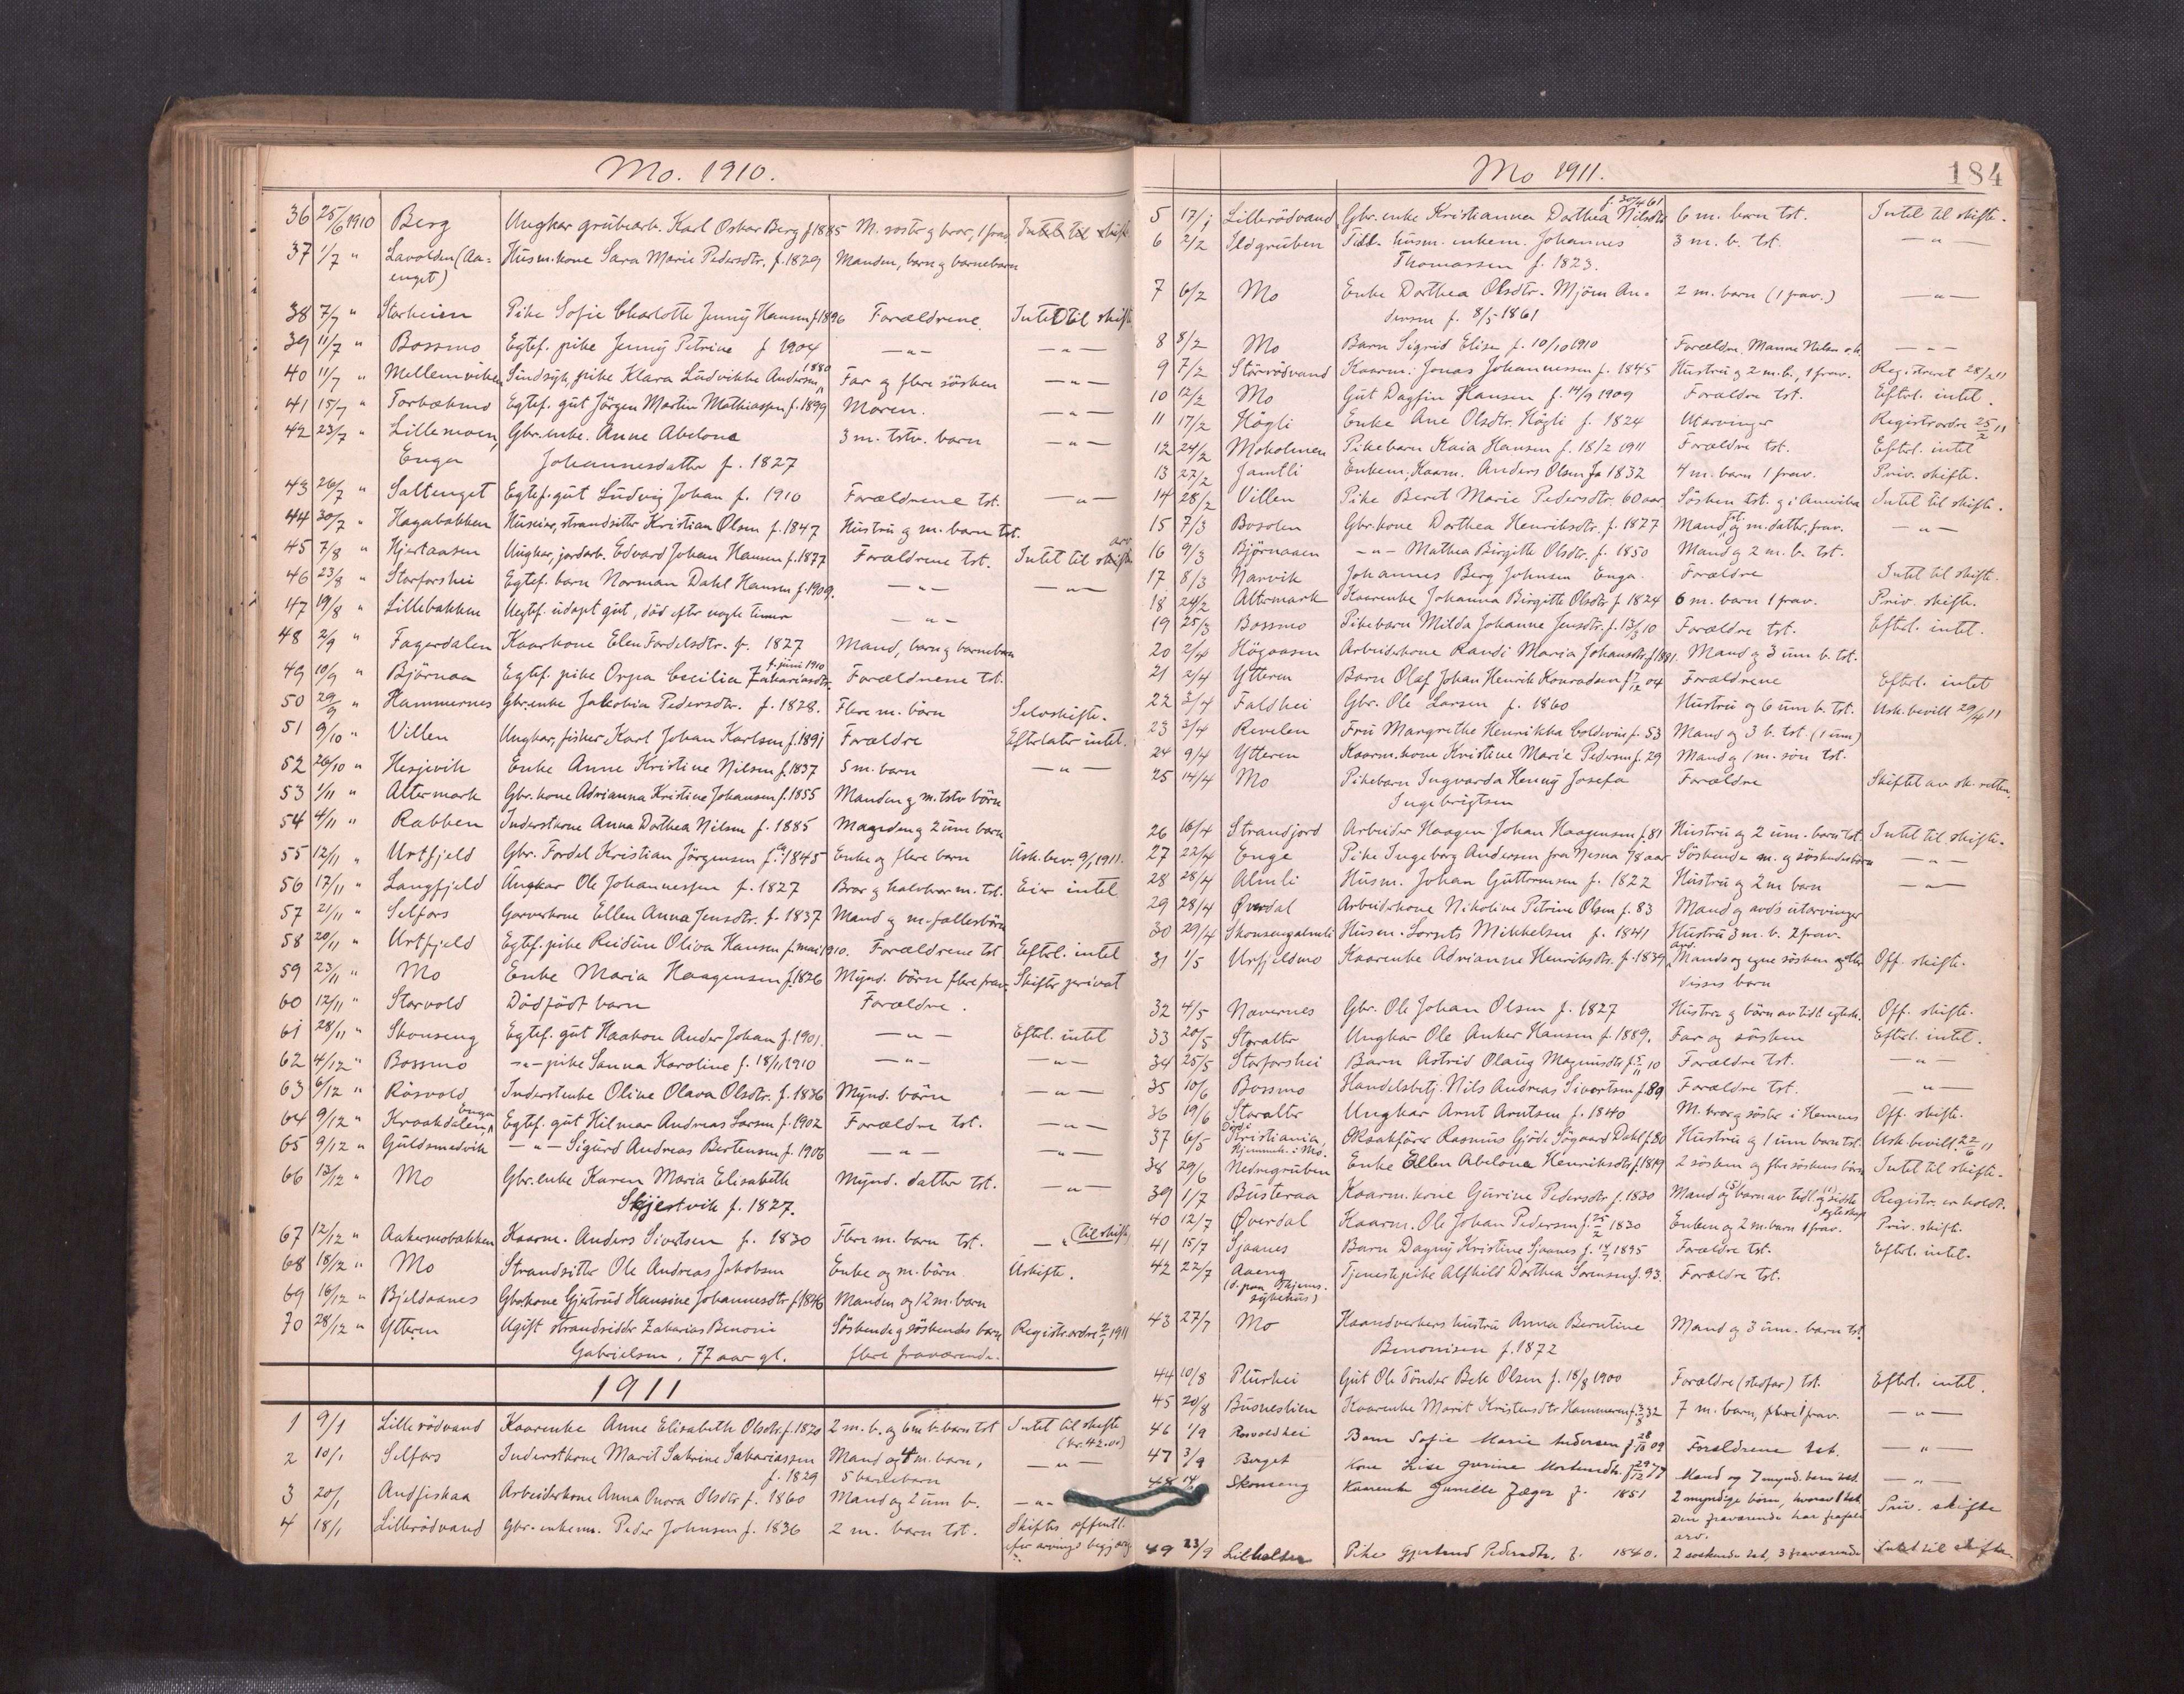 Mo. 1910.
36 25/6 1910 Berg Ungkar grubearb. Karl Oskar Berg f 1885 M. søstr og bror, 1 frav. Intet til skifte
37 1/7 " Lavolden (Aa= Husm.kone Sara Marie Pedersdtr. f. 1829 Manden, barn og barnebarn
enget)
38 7/7 " Storheien Pike Sofie Charlotte Jenny Hansen f 1896 Forældrene Intet til skifte
39 11/7 " Bossmo Egtef. pike Jenny Petrine f 1904 — " — — " —
40 11/7 " Mellemviken Sindsyk, pike Klara Ludvikke Andersen 1880 Far og flere søsken — " —
41 15/7 " Egtef. gut Jörgen Martin Mathiassen f. 1899 Moren. — " —
42 23/7 " Lillemoen, Gbr. enke. Anne Abelone 3 m. tstv. barn — " —
Enga Johannesdatter f. 1827
43 26/7 " Saltenget Egtef. gut Ludvig Johan f. 1910 Forældrene tst. — " —
44 30/7 " Hagabakken Huseier, strandsitter Kristian Olsen f. 1847 Hustru og m. barn tst.
45 7/8 " Hjertaasen Ungkar, jordarb. Edvard Johan Hansen f. 1877 Forældrene tst. Intet til skifte
46 23/8 " Storforshei Egtef. barn Norman Dahl Hansen f. 1909. — " — — " —
47 19/8 " Lillebakken Uegtef. udøpt gut, död efter nogle timer — " —
48 2/9 " Fagerdalen Kaarkone Elen Fordelsdtr. f. 1827 Mand, barn og barnebarn
49 10/9 " Björnaa Egtef. pike Orpa Cecilia Zakariasdtr. f. juni 1910 Forældrene tst.
50 29/9 " Hammernes Gbr. enke Jakobia Pedersdtr. f. 1828. Flere m. börn Selvskifte.
51 9/10 " Villen Ungkar, fisker Karl Johan Karlsen f. 1891 Forældre Efterlater intet.
52 26/10 " Hesjevik Enke Anne Kristine Nilsen f. 1837 5 m. barn — " —
53 1/11 " Altermark Gbr. kone Adrianna Kristine Johansen f. 1855 Manden og m. tstv börn
54 4/11 " Rabben Inderstkone Anna Dorthea Nilsen f. 1885 Manden og 2 um barn
55 12/11 " Urtfjeld Gbr. Fordel Kristian Jörgensen f. 1845 Enke og flere barn Usk. bev. 9/1 1911.
56 17/11 " Langfjeld Ungkar Ole Johannessen f. 1827 Bror og halvbror m. tst. Eier intet
57 21/11 " Selfors Garverkone Ellen Anna Jensdtr. f. 1837 Mand og m. fællesbörn
58 20/11 " Urtfjeld Egtef. pike Reidun Oliva Hansen f. mai 1910. Forældrene tst Efterl. intet
59 23/11 " Mo Enke Maria Haagensen f. 1826 Mynd. börn flere frav. Skifter privat
60 12/11 " Storvold Dödfödt barn Forældre.
61 28/11 " Skonseng Egtef. gut Haakon Ander Johan f. 1901. — " — Efterl. intet
62 4/12 " Bossmo — " — pike Sanna Karoline f. 18/11 1910 — " — — " —
63 6/12 " Rösvold Inderstenke Oline Olava Olsdtr. f. 1836 Mynd. börn — " —
64 9/12 " Kraakdalen, Enga Egtef. gut Hilmar Andreas Larsen f. 1902 Forældre tst. — " —
65 9/12 " Guldsmedvik — " — Sigurd Andreas Bertensen f. 1906 — " — — " —
66 13/12 " Mo Gbr. enke Karen Maria Elisabeth Mynd. datter tst. — " —
Skjestvik f. 1827.
67 12/12 " Aakermobakken Kaarm. Anders Sivertsen f. 1830 Flere m. barn tst. — " til skifte
68 18/12 " Mo Strandsitter Ole Andreas Jakobsen Enke og m. börn Uskifte.
69 16/12 " Bjeldaanes Gbr. kone Gjertrud Hansine Johannesdtr f. 1846 Manden og 12 m. barn
70 28/12 " Ytteren Ugift strandsidder Zakarias Benoni Söskende og söskendes barn Registr. ordre 2/1 1911
Gabrielsen, 77 aar gl. flere fraværende.
1911
1 9/1 Lillerödvand Kaarenke Anne Elisabeth Olsdtr. f. 1820 2 m. b. og 6 m. b. barn tst Intet til skifte
(kr. 42.00)
2 10/1 Selfors Inderstkone Marit Katrine Sakariassen Mand og 4 m. barn, — " —
f. 1829 5 barnebarn
3 20/1 Andfiskaa Arbeiderkone Anna Onora Olsdtr f. 1860 Mand og 2 um b. — " —
4 18/1 Lillerödvand Gbr. enkem. Peder Johnsen f. 1836 2 m. barn tst. Skiftes offentl.
efter arvings begjæring
Mo 1911.
184
5 17/1 Lillerödvand Gbr. enke Kristianna Dorthea Nilsdtr f. 30/4 61 6 m. barn tst. Intet til skifte.
6 2/2 Ildgruben Tidl. husm. enkem. Johannes 3 m. b. tst. — " —
Thomassen f. 1823.
7 6/2 Mo Enke Dorthea Olsdtr. Mjöm An= 2 m. barn (1 frav.) — " —
dersen f. 8/5 1861
8 8/2 Mo Barn Sigrid Elise f. 10/10 1910 Forældre, Manne Nilsen o. h. — " —
9 7/2 Storrödvand Kaarm. Jonas Johannessen f. 1845 Hustru og 2 m. b., 1 frav. Registreret 28/2 11
10 12/2 Mo Gut Dagfin Hansen f. 14/9 1909 Forældre tst. Efterl. intet.
11 17/2 Högli Enke Ane Olsdtr. Högli f. 1824 Utarvinger Registrordre 25/2 11
12 24/2 Moholmen Pikebarn Kaia Hansen f. 18/2 1911 Forældre tst. Efterl. intet
13 27/2 Jamtli Enkem., Kaarm. Anders Olsen f 1832 4 m. barn 1 frav. Priv. skifte.
14 28/2 Villen Pike Berit Marie Pedersdtr 60 aar Sösken tst. og i Amerika Intet til skifte.
15 7/3 Bosolen Gbr. kone Dorthea Henriksdtr. f. 1877 Mand tst. og m. datter, frav. — " —
16 9/3 Björnaaen — " — Mathea Birgitte Olsdtr. f. 1850 Mand og 2 m. b. tst.
17 8/3 Narvik Johannes Berg Johnsen Enga. Forældre Intet til skifte.
18 24/2 Altermark Kaarenke Johanna Birgitte Olsdtr f 1824 6 m. barn 1 frav. Priv. skifte.
19 25/3 Bossmo Pikebarn Milda Johanne Jensdtr. f. 13/3 10 Forældre tst. Efterl. intet.
20 2/4 Högaasen Arbeiderkone Randi Maria Johansdtr. f 1881. Mand og 3 um b. tst.
21 2/4 Ytteren Barn Olaf Johan Henrik Konradsen f 7/12 04 Forældrene Efterl. intet
22 3/4 Faldhei Gbr. Ole Larsen f. 1860 Hustru og 6 um b. tst. Usk. bevill 29/4 11
23 3/4 Revelen Fru Margrethe Henrikka Coldevin f. 53 Mand og 3 b. tst. (1 um)
24 9/4 Ytteren Kaarm. kone Kristine Marie Pedersen f. 29 Mand og 1 m. sön tst.
25 14/4 Mo Pikebarn Ingvarda Henny Josefa Forældre Skiftet av sk. retten.
Ingebrigtsen
26 16/4 Strandjord Arbeider Haagen Johan Haagensen f. 81 Hustru og 2 um. barn tst. Intet til skifte.
27 22/4 Enge Pike Ingeborg Andersen fra Nesna 78 aar Söskende m. og söskendebarn — " —
28 28/4 Almli Husm. Johan Guttormsen f. 1822 Hustru og 2 m barn — " —
29 28/4 Överdal Arbeiderkone Nikoline Petrine Olsen f. 83 Mand og avd's utarvinger
30 29/4 Skonsengalmli Husm. Lornts Mikkelsen f. 1841 Hustru 3 m. b. 2 frav.
31 1/5 Urfjeldmo Kaarenke Adrianne Henriksdtr. f. 1839 avd. Mands og egne sösken eller Off. skifte.
disses barn
32 4/5 Navernes Gbr. Ole Johan Olsen f. 1827 Hustru og börn av tidl. egtesk. Off. skifte.
33 20/5 Storalter Ungkar Ole Anker Hansen f. 1889. Far og sösken Efterl. intet.
34 25/5 Storforshei Barn Astrid Olaug Magnusdtr f. 5/11 10 Forældre tst. — " —
35 10/6 Bossmo Handelsbetj. Nils Andreas Sivertsen f. 89 Forældre tst. — " —
36 19/6 Storalter Ungkar Arnt Arntsen f. 1840 M. bror og söster i Hemnes Off. skifte.
37 6/5 Död i Kristiania, Oksakförer Rasmus Gjöde Sögaard Dahl f. 80 Hustru og 1 um barn tst. Usk. bevill. 22/6 11
Hjemmeh. i Mo.
38 29/6 Nedregruben Enke Ellen Abelone Henriksdtr f. 1819 2 sösken og flere söskens börn Intet til skifte.
39 1/7 Busteraa Kaarm. kone Gurine Pedersdtr f. 1830 Mand og (5) barn av tidl. (1) og sidste Registr. er holdt.
egteskap
40 12/7 Överdal Kaarm. Ole Johan Pedersen f. 25/2 1830 Enken og 2 m. barn 1 frav. Priv. skifte.
41 15/7 Sjaanes Barn Dagny Kristine Sjaanes f. 14/7 1895 Forældre tst. Efterl. intet.
42 22/7 Aaeng Tjenestepike Alfhild Dorthea Sörensen f. 93. Forældre tst.
sykehus)
43 27/7 Mo Haandverkers hustru Anna Berntine Mand og 3 um. barn tst.
Benonisen f. 1872
44 10/8 Plurhei Gut Ole Tönder Bek Olsen f. 18/8 1900 Forældre (stedfar) tst. Efterl. intet.
45 20/8 Busneslien Kaarenke Marit Kristensdtr Hammeren f. 3/8 32 7 m. barn, flere frav. — " —
46 1/9 Rosvoldhei Barn Sofie Marie Andersen f. 28/10 09 Forældrene tst. — " —
47 3/9 Berget Kone Lise Gurine Mortensdtr. f. 29/12 77 Mand og 7 mynd. barn tst. — " —
48 14/9 Skonseng Kaarenke Gunille Jæger f. 1851 2 myndige börn, hvorav 1 tst. Priv. skifte
Den fraværende har frafaldt
arv.
49 23/9 Lilholten Pike Gjertrud Pedersdtr. f. 1840. 2 söskende tst, 3 fraværende Intet til skifte.